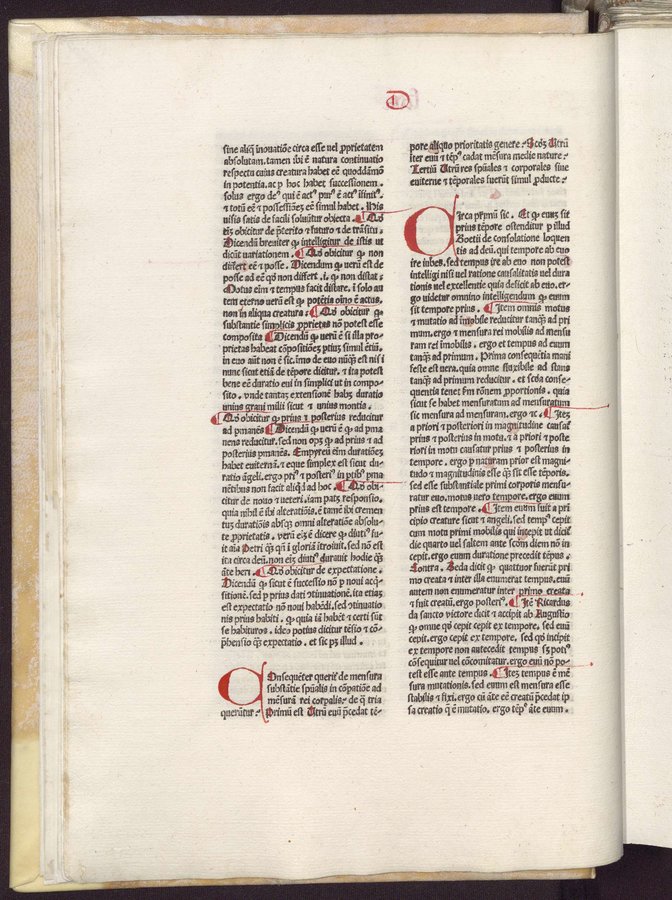 D
sine aliq̃ inouatiõe circa esse uel ꝓprietatem
absolutam. tamen ibi ẽ natura continuatio
respectu cuius creatura habet eẽ quoddãmõ
in potentia. ac p hoc habet successionem.
solus ergo deꝰ qui ẽ actꝰ purꝰ ẽ actꝰ ifinitꝰ.
⁊ totũ eẽ ⁊ possessiões eẽ simul habet. Hiis
uisis satis de facili soluũtur obiecta. Qđ
eĩȝ obicitur de p̃terito ⁊ futuro ⁊ de trãsitu.
Dicendũ breuiter ꝙ intelligitur de istis ut
dicũt uariationem. Qđ obicitur ꝙ non
differt eẽ ⁊ posse. Dicendum ꝙ uerũ est de
posse ad eẽ qđ non differt .i. ꝙ non distat.
Motus eĩm ⁊ tempus facit distare. ĩ solo au
tem eterno uerũ est ꝙ potẽtia oĩno ẽ actus.
non in aliqua creatura. Qđ obicitur ꝙ
substantie simplicis ꝓprietas nõ potest esse
composita. Dicendũ ꝙ uerũ ẽ si illa pro-
prietas habeat cõpositiõeȝ ptiuȝ simul ẽtiũ.
in euo aũt non ẽ sic. ĩmo de euo nũq̃ȝ est nisi
nunc sicut etiã de tẽpore dicitur. ⁊ ita potest
bene eẽ duratio eui in simplici ut in compo-
sito. unde tantaȝ extensionẽ habȝ duratio
unius grani milii sicut ⁊ unius montis.
Qđ obicitur ꝙ prius ⁊ posterius reducitur
ad pmanẽs. Dicendũ ꝙ uerũ ẽ ꝙ ad pma
nens reducitur. sed non opȝ ꝙ ad prius ⁊ ad
posterius pmanẽs. Empyreũ eĩm duratiõeȝ
habet euiternã. ⁊ eque simplex est sicut du-
ratio ãgeli. ergo priꝰ ⁊ posteriꝰ in ptibꝰ pma
nẽtibus non facit aliqđ ad hoc. Qđ obi-
citur de nouo ⁊ ueteri. iam patȝ responsio.
quia nihil ẽ ibi alteratiõis. ẽ tamẽ ibi cremen
tuȝ duratiõis absqȝ omni alteratiõe absolu-
te ꝓprietatis. uerũ eĩȝ ẽ dicere ꝙ diutiꝰ fu-
it aĩa Petri q̃ȝ q̃ ĩ gloriã ĩtroiuit. sed nõ est
ita circa deũ. non eĩȝ diutiꝰ durauit hodie q̃ȝ
ãte heri. Qđ obicitur de expectatione.
Dicendũ ꝙ sicut ẽ successio nõ p noui acq̃-
sitionẽ. sed p prius dati ⁊tinuationẽ. ita etiaȝ
est expectatio nõ noui habẽdi. sed ⁊tinuatio
nis prius habiti. ⁊ quia iã habẽt ⁊ certi sũt
se habituros. ideo potius dicitur tẽsio ⁊ cõ-
p̃hensio q̃ȝ expectatio. et sic pȝ illud.
COnsequẽter querit᷑ de mensura
substãtie spũalis in cõpatiõe ad
mẽsurã rei corpalis. de q̃ tria
querũtur. Primũ est Utrũ euũ p̃cedat tẽ-
pore aliquo prioritatis genere. Scđȝ Utrũ
iter euũ ⁊ tẽpꝰ cadat mẽsura medie nature.
Tertiũ Utrũ res spũales ⁊ corporales siue
euiterne ⁊ tẽporales fuerũt simul ꝓducte.
CIrca primũ sic. Et ꝙ euuȝ sit
prius tẽpore ostenditur p illud
Boetii de consolatione loquen
tis ad deũ. qui tempore ab euo
ire iubes. sed tempus ire ab euo non potest
intelligi nisi uel ratione causalitatis uel dura
tionis uel excellentie quia deficit ab euo. er-
go uidetur omnino intelligendum ꝙ euum
sit tempore prius. Item omnis motus
⁊ mutatio ad imobile reducitur tanq̃ȝ ad pri
mum. ergo ⁊ mensura rei mobilis ad mensu
ram rei imobilis. ergo et tempus ad euum
tanq̃ȝ ad primum. Prima consequẽtia mani
feste est uera. quia omne fluxibile ad stans
tanq̃ȝ ad primum reducitur. et scđa conse-
quentia tenet ꝑm rõnem ꝓportionis. quia
sicut se habet mensuratum ad mensuratum
sic mensura ad mensuram. ergo ⁊c. Iteȝ
a priori ⁊ posteriori in magnitudine causat᷑
prius ⁊ posterius in motu. ⁊ a priori ⁊ poste
riori in motu causatur prius ⁊ posterius in
tempore. ergo p naturam prior est magni-
tudo ⁊ magnitudinis esse q̃ȝ sit esse tẽporis.
sed esse substantiale primi corporis mensu-
ratur euo. motus uero tempore. ergo euum
prius est tempore. Item euum fuit a pri
cipio creature sicut ⁊ angeli. sed tempꝰ cepit
cum motu primi mobilis qui incepit ut dicit᷑
die quarto uel saltem ante scđm diem nõ in
cepit. ergo euum duratione precedit tẽpus.
Contra. Beda dicit ꝙ quattuor fuerũt pri
mo creata ⁊ inter illa enumerat tempus. euũ
autem non enumeratur inter primo creata
⁊ fuit creatũ. ergo posteriꝰ. Itẽ Ricardus
da sancto uictore dicit ⁊ accipit ab Augustio
ꝙ omne qđ cepit cepit ex tempore. sed euũ
cepit. ergo cepit ex tempore. sed qđ incipit
ex tempore non antecedit tempus sȝ potiꝰ
cõsequitur uel cõcomitatur. ergo euũ nõ po-
test esse ante tempus. Iteȝ tempus ẽ mẽ
sura mutationis. sed euum est mensura esse
stabilis ⁊ fixi. ergo cũ ãte eẽ creatũ p̃cedat ip
sa creatio q̃ ẽ mutatio. ergo tẽpꝰ ãte euum.